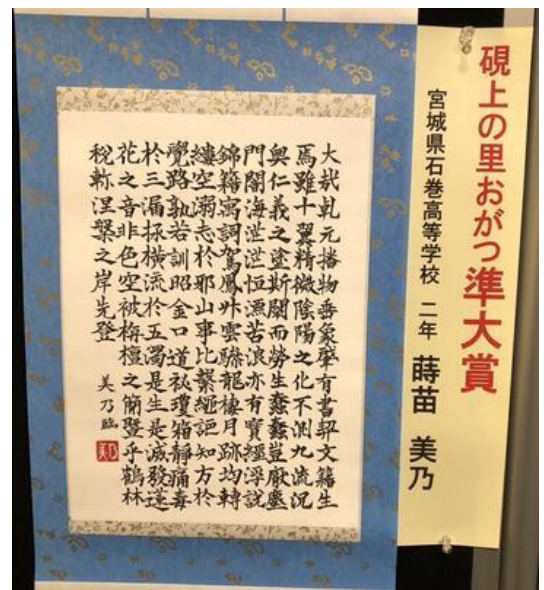 硯上の里おがつ準大賞
宮城県石巻高等学校 二年 蒔苗 美乃
大哉乹元播物垂象肇有書契文籍生
焉雖十翼精微陰陽之化不測九流沉
奥仁義之塗斯闡而勞生蠢蠢豈厭塵
門閡海茫茫恒漂苦浪亦有寳經浮説
錦籍寓詞駕鳳升雲驂龍棲月跡均轉
縷空溺志於邪山事比繫詎知方於
覺路孰若訓昭金口道秘瓊箱靜痛毒
於三漏拯横流於五濁是生是滅發蓮
花之音非色空被栴檀之簡曁乎鶴林
稅軫涅槃之岸先登
美乃臨